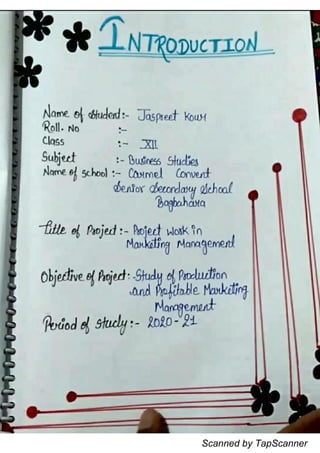 INTRODUCTION
Name of Student:- Jaspreet Kour
Roll. No :-
Class :- XII
Subject :- Business Studies
Name of School :- Carmel Convent
Senior Secondary School
Bagbahara
Title of Project :- Project work in
Marketing Management
Objective of Project:- Study of Production
and Profitable Marketing
Management
Period of Study:- 2020-21
Scanned by TapScanner